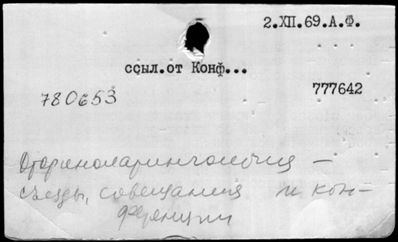 2.XII.69.А.Ф.
ссыл.от Конф...
777642
780653
Оториноларингология –
съезды, совещания и кон-
ференции